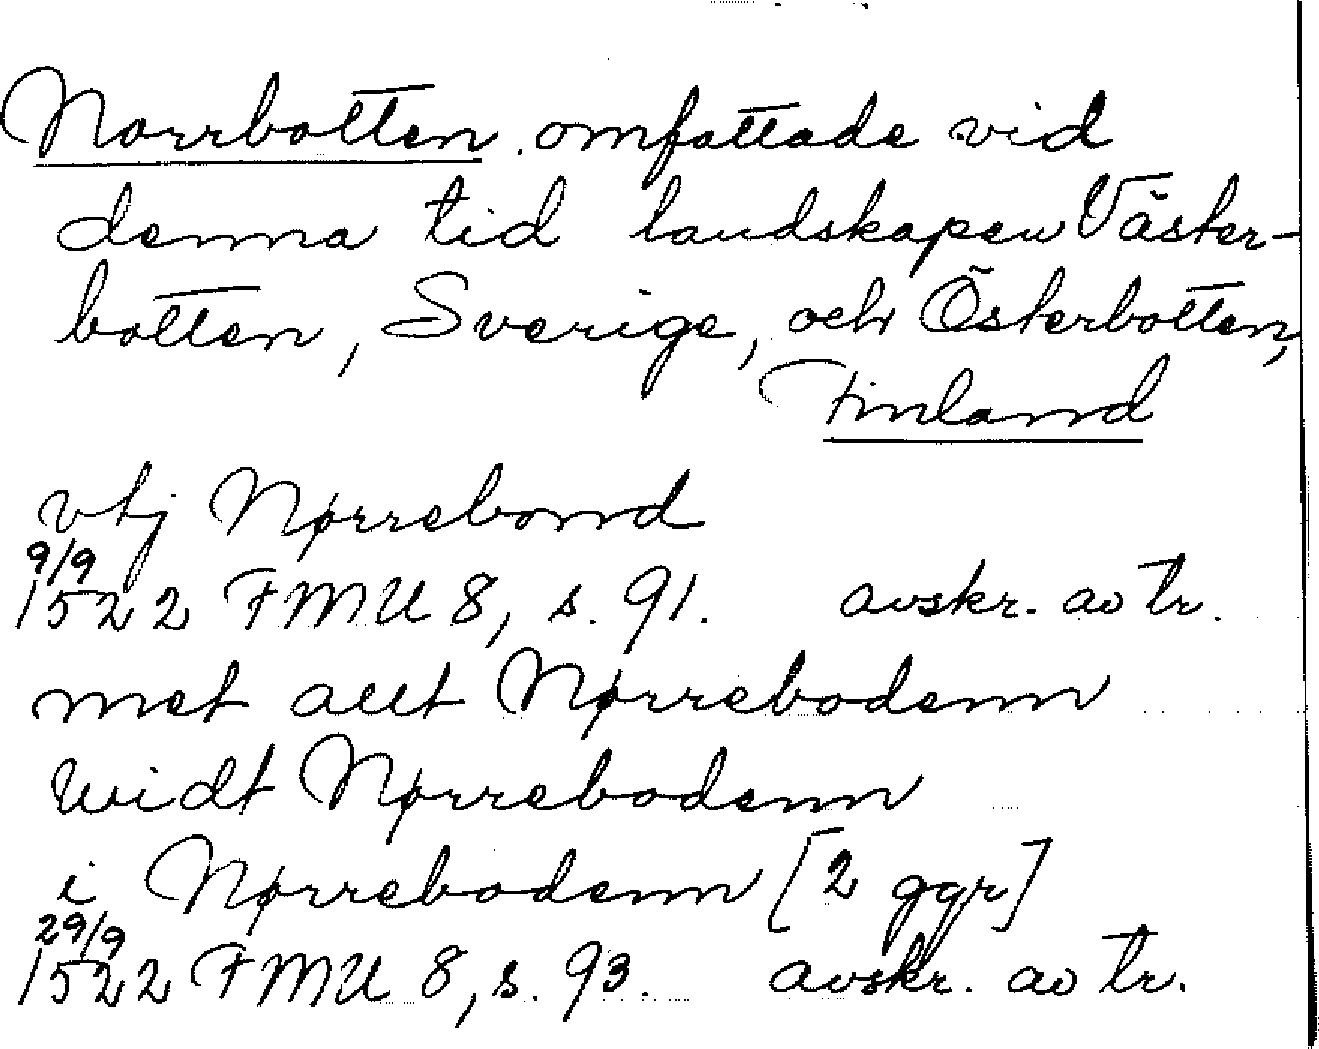 Norrbotten omfattade vid
denna tid landskapen Väster-
botten, Sverige, och Österbotten,
Finland
vtj Nørrebond
9/9
1522 FMU 8, s. 91. avskr. av tr.
met allt Nørrebodenn
widt Nørrebodenn
i Nørrebodenn [2 ggr]
29/9
1522 FMU 8, s. 93. avskr. av tr.